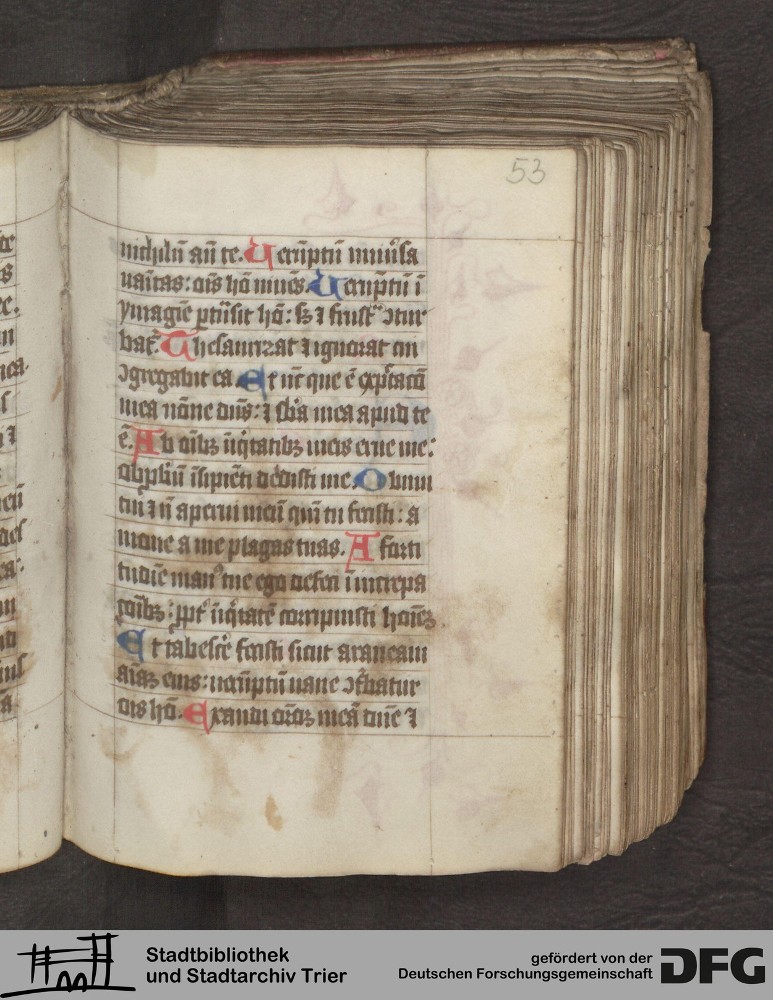 53
nichilū añ te. Uerūptñ uniūsa
uaītas: oīs hō uiuēs. Ueruptñ ī
ymagīe ꝑtñsit hō: sꝫ ⁊ frustᵃ ɔtur
batᷣ. Thesaurizat ⁊ ignorat cui
ɔgregabit ea. Et nūc que ē exp̄tacō
mea nōne dñs: ⁊ sb̄a mea apud te
ē. Ab oībꝫ iīq̇tatibꝫ meis erue me:
obpbiū īsipiēti dedisti me. Obmu
tui ⁊ ñ aperui meū qm̄ tu fecisti: a
moue a me plagas tuas. A forti
tudīe manꝰ tue ego defeci ī increpa
coībꝫ: ꝓpt̕ iīq̇tatē corripuisti hoīeꝫ
Et tabescẽ fecisti sicut araneam
aīaꝫ eius: uerūptñ uane ɔt̕batur
oīs hō. Exaudi orōꝫ meā dñe ⁊
Stadtbibliothek
und Stadtarchiv Trier
gefördert von der
Deutschen Forschungsgemeinschaft
DFG